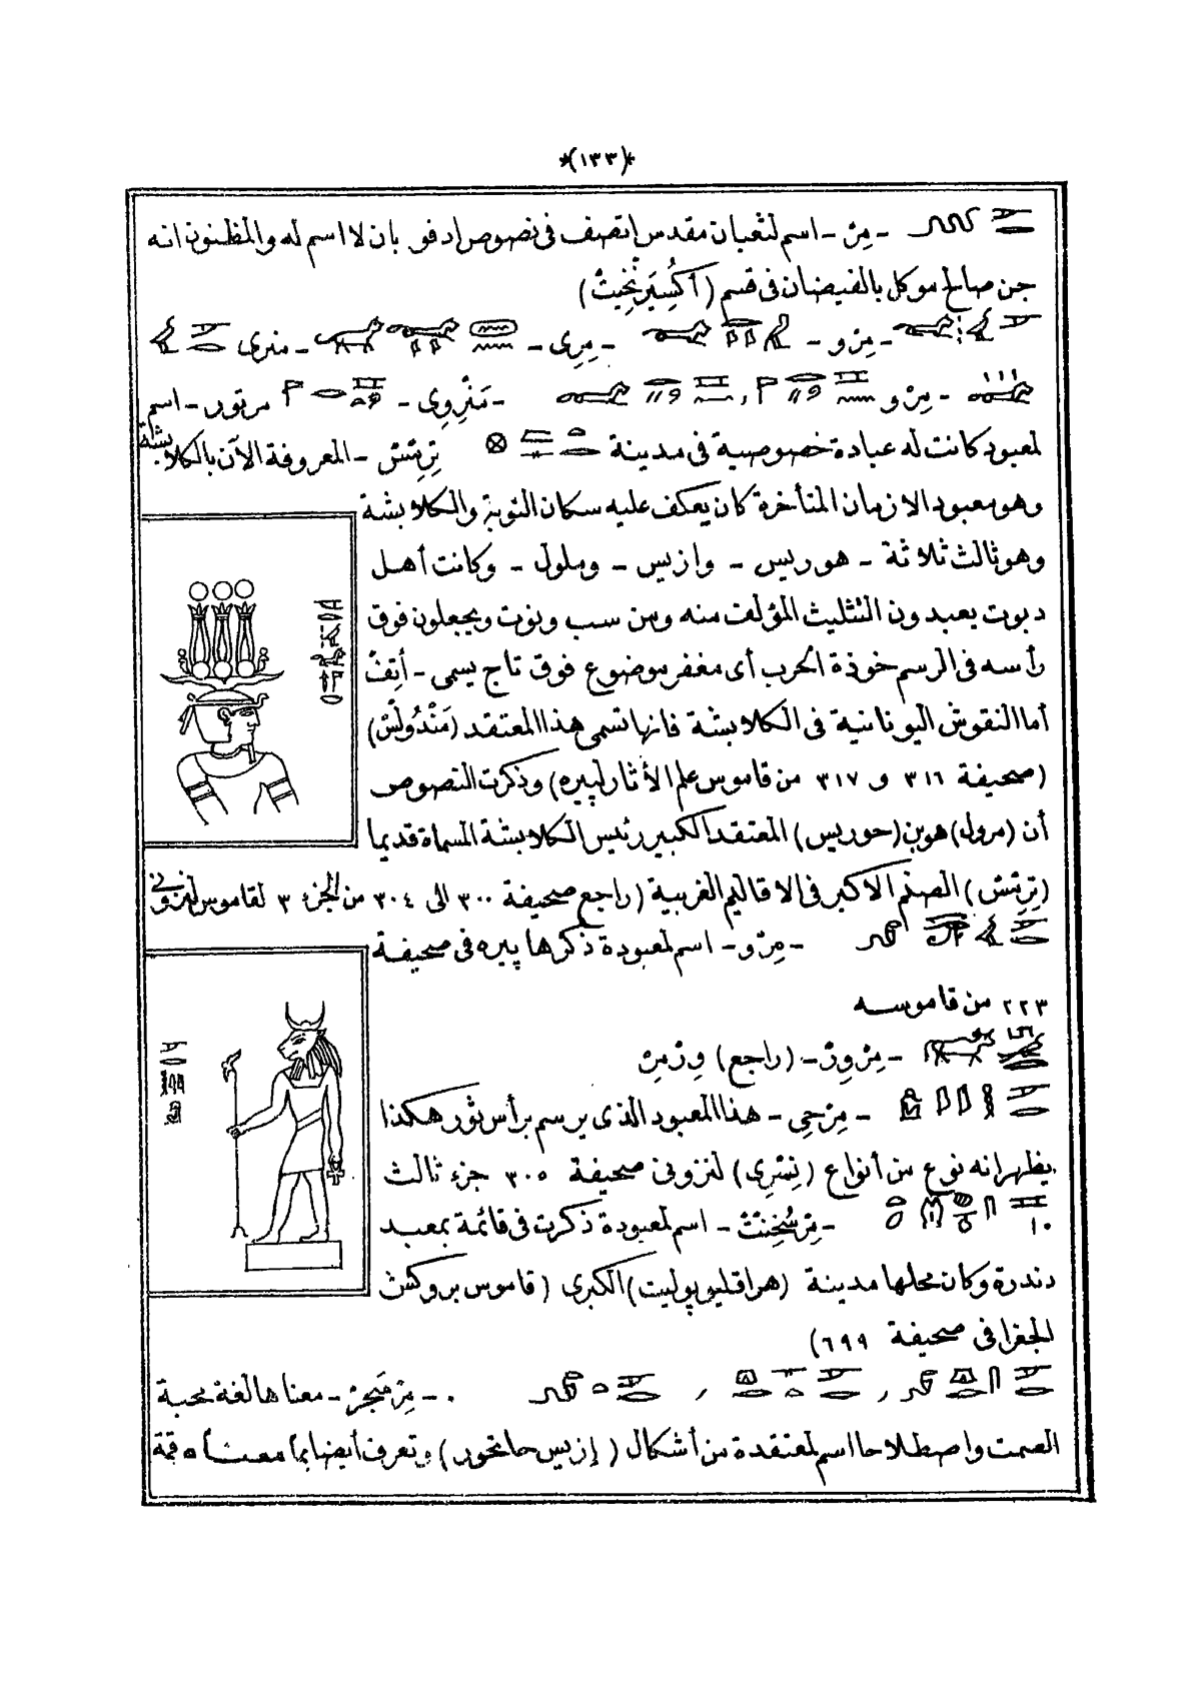 *(١٣٣)*
- مِرْ - اسم لثعبان مقدس اتصف فى نصوص ادفو بان لا اسم له والمظنون انه
جن صالح موكل بالفيضان فى قسم
- مِرْو - - مِرِى - - منرى
- مِرْو - مَنْرِوِى - مرتور - اسم
لمعبود كانت له عبادة خصوصية فى مدينة تِرِتِسْ - المعروفة الآن بالكلابشة
وهو معبود الازمان المتأخرة كان يعكف عليه سكان النوبة والكلابشة
وهو ثالث ثلاثة - هوريس - وازيس - وملول - وكانت أهل
دبوت يعبدون التثليث المؤلف منه ومن سب ونوت ويجعلون فوق
رأسه فى الرسم خوذة الحرب أى مغفر موضوع فوق تاج يسمى - أَتِفْ
أما النقوش اليونانية فى الكلابشة فانها تسمى هذا المعتقد (مَنْدُولَسْ)
(صحيفة ٣١٦ و ٣١٧ من قاموس علم الأثار لپيره) وذكرت النصوص
أن (مرول) هو بن (حوريس) المعتقد الكبير رئيس الكلابشة المسماة قديما
الصنم الاكبر فى الاقاليم الغربية (راجع صحيفة ٣٠٠ الى ٣٠٤ من الجزء ٣ لقاموس لنزونى
- مِرْو - اسم لمعبودة ذكرها پيره فى صحيفة
٢٢٣ من قاموسه
- مِرْوِرْ - (راجع) وِرْمِرْ
- مِرْحِى - هذا المعبود الذى يرسم برأس ثور هكذا
يظهر انه نوع من أنواع لنزونى صحيفة ٣٠٥ جزء ثالث
- اسم لمعبودة ذكرت فى قائمة بمعبد
دندرة وكان محلها مدينة (هراقليوپوليت) الكبرى (قاموس بروكش
الجغرافى صحيفة ٦٩٩)
، ، - مِرْ سَجِرْ - معناها لغة محبة
الصمت واصطلاحا اسم لمعتقدة من أشكال (إزيس حاتحور) وتعرف أيضا بما معناه قمة